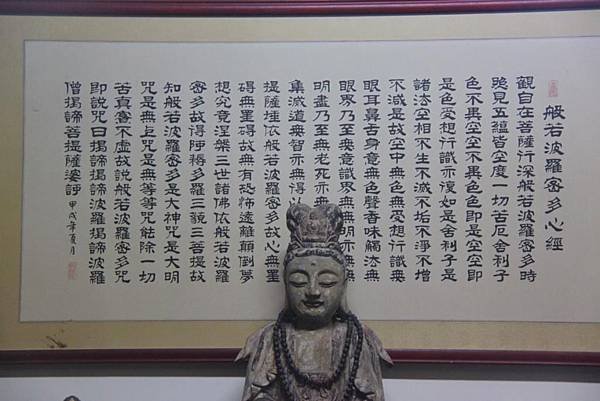 般若波羅密多心經
觀自在菩薩行深般若波羅密多時
照見五蘊皆空度一切苦厄舍利子
色不異空空不異色色即是空空即
是色受想行識亦復如是舍利子是
諸法空相不生不滅不垢不淨不增
不減是故空中無色無受想行識無
眼耳鼻舌身意無色聲香味觸法無
眼界乃至無意識界無無明
明盡乃至無老死亦無
集滅道無智亦無得
提薩埵依般若波羅密多故心無罣
礙無罣礙故無有恐怖遠離顛倒夢
想究竟涅槃三世諸佛依般若波羅
密多故得阿耨多羅三藐三菩提故
知般若波羅密多是大神咒是大明
咒是無上咒是無等等咒能除一切
苦真實不虛故說般若波羅密多咒
即說咒曰揭諦揭諦波羅揭諦波羅
僧揭諦菩提薩婆訶
甲戌年夏月